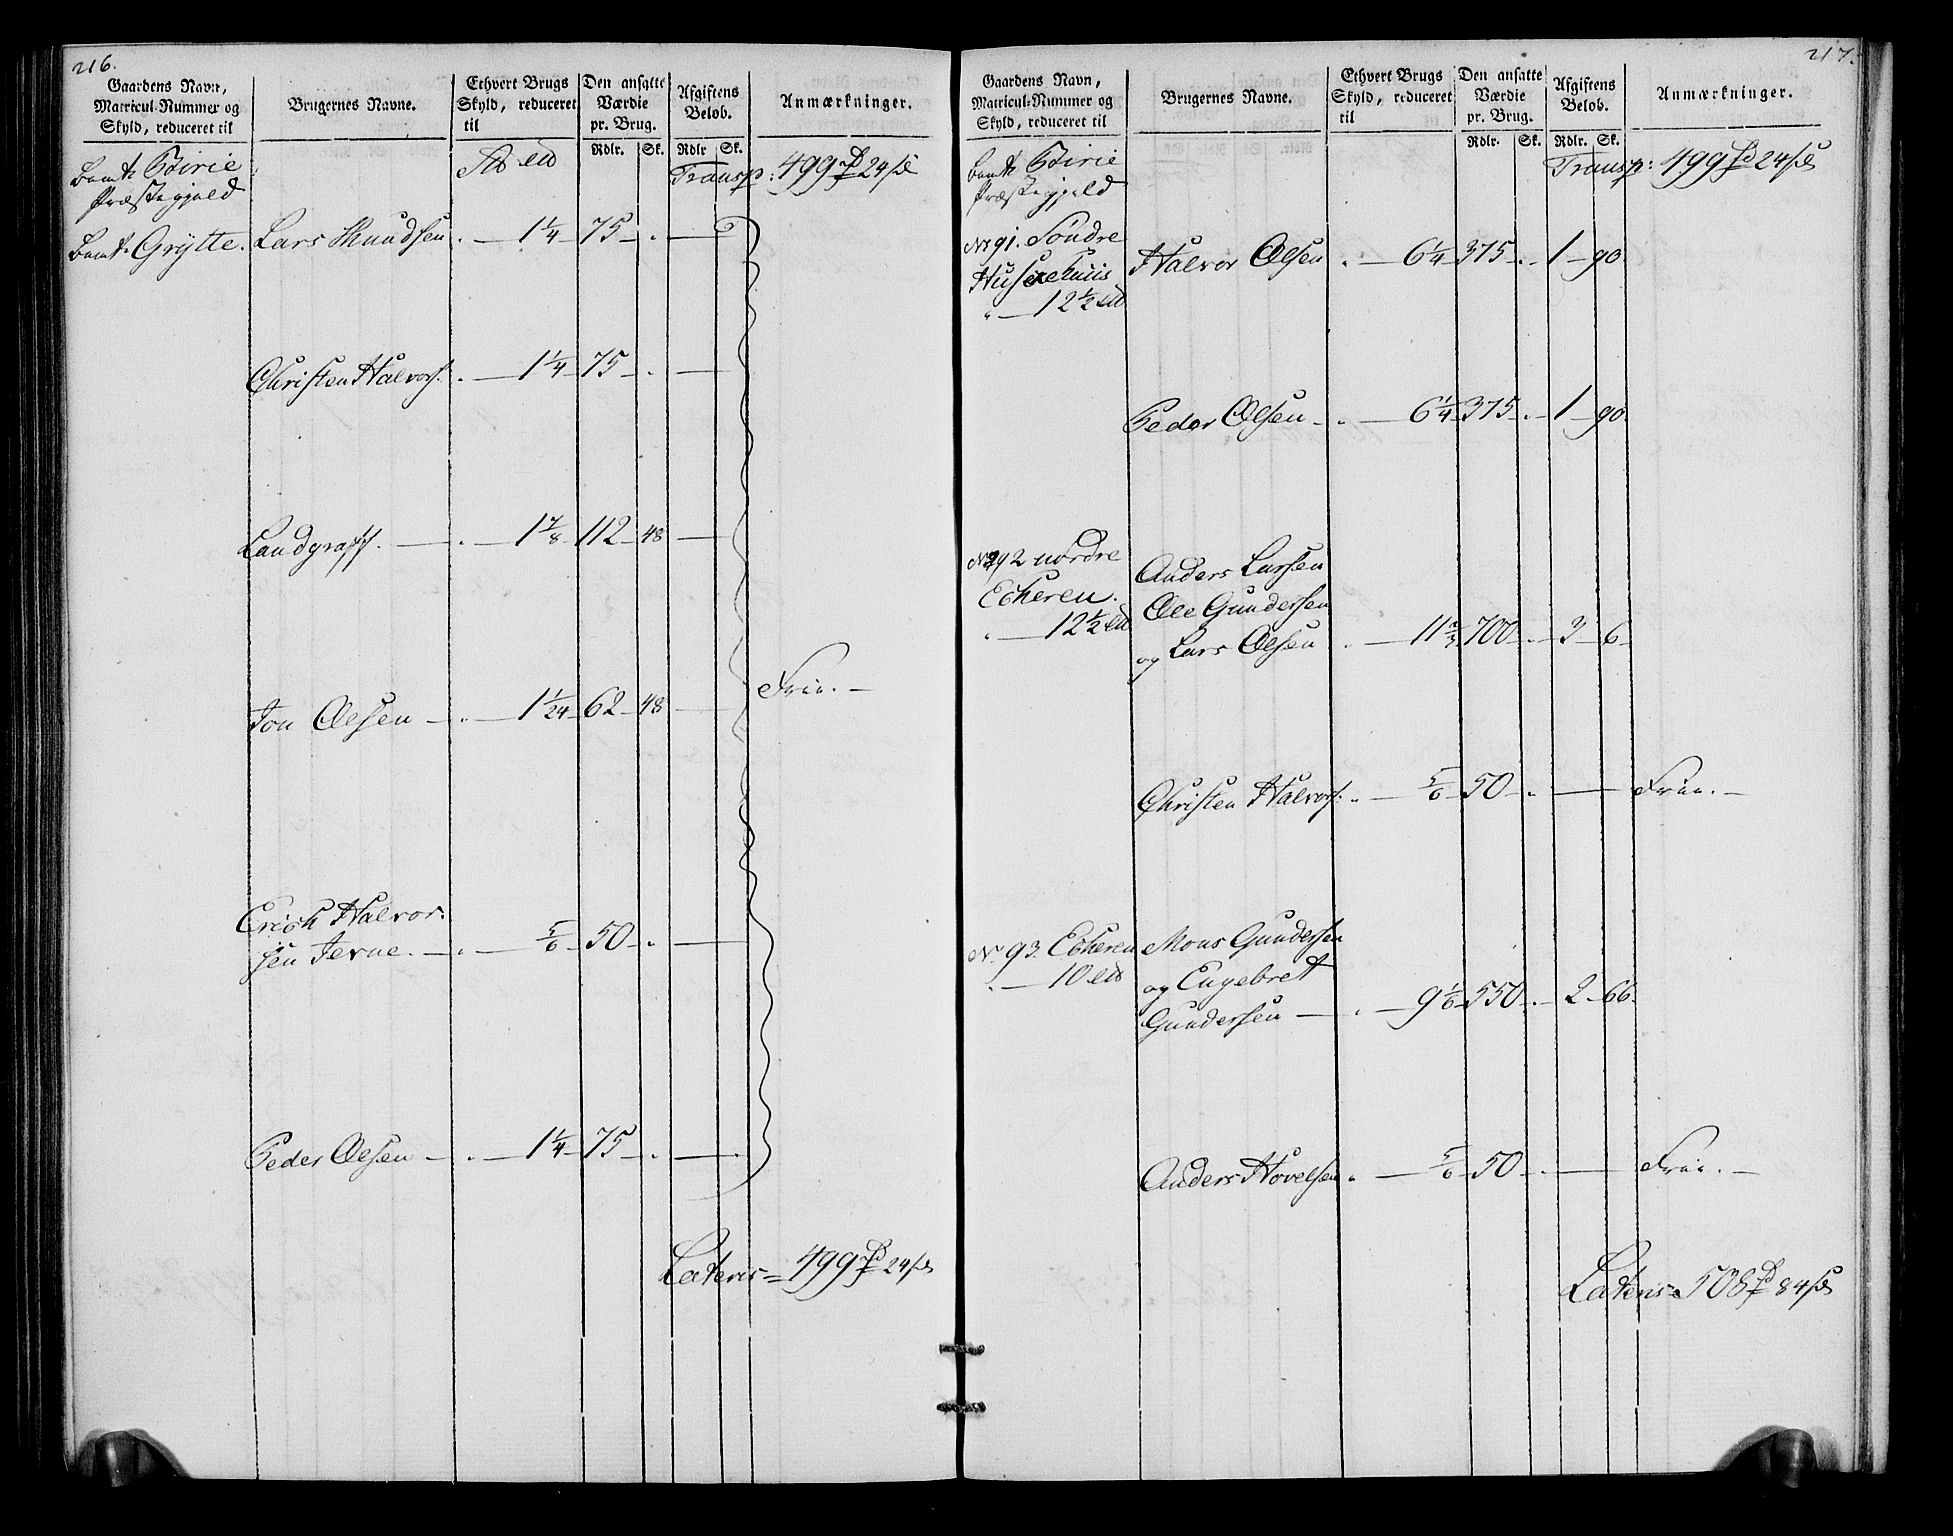 216.
Gaardens Navn,
Matricul-Nummer og
Skyld, reduceret til
Brugernes Navne.
Ethvert Brugs
Skyld, reduceret
til
Den ansatte
Værdie
pr. Brug.
Rdlr. Sk.
Afgiftens
Beløb.
Rdlr Sk.
Anmærkninger.
Birie
Præstegjeld
Transp: 499 24
Grÿtte. Lars Knudsen . — 1 1/4 75 . —
Christen Halvors. . — 1 1/4 75 . —
Landgraff. — . — 1 7/8 112 48 —
Frie. —
Jon Olsen — . — 1 1/24 62 48 —
Erich Halvor-
sen Jevne. — . — 5/6 50 . —
Peder Olsen — . — 1 1/4 75 . —
Lateris = 499 24
217.
Gaardens Navn,
Matricul-Nummer og
Skyld, reduceret til
Brugernes Navne.
Ethvert Brugs
Skyld, reduceret
til
Den ansatte
Værdie
pr. Brug.
Rdlr. Sk.
Afgiftens
Beløb.
Rdlr. Sk.
Anmærkninger.
Birie
Præstegjeld
Transp: 499 24
No 91. Søndre
Halvor Olsen . — 6 1/4 375 . 1 — 90.
12 1/2
Peder Olsen — . — 6 1/4 375 . 1 — 90.
92 nordre Anders Larsen
Eckeren. Ole Gundersen
12 1/2 og Lars Olsen . — 11 2/3 700 . 3 — 6
Christen Halvors: . — 5/6 50 . — Frie. —
No 93. Eckeren Mons Gundersen
10 og Engebret
Gundersen — . — 9 1/6 550 . 2 — 66
Anders Hovelsen . — 5/6 50 . — Frie. —
Lateris = 508 84